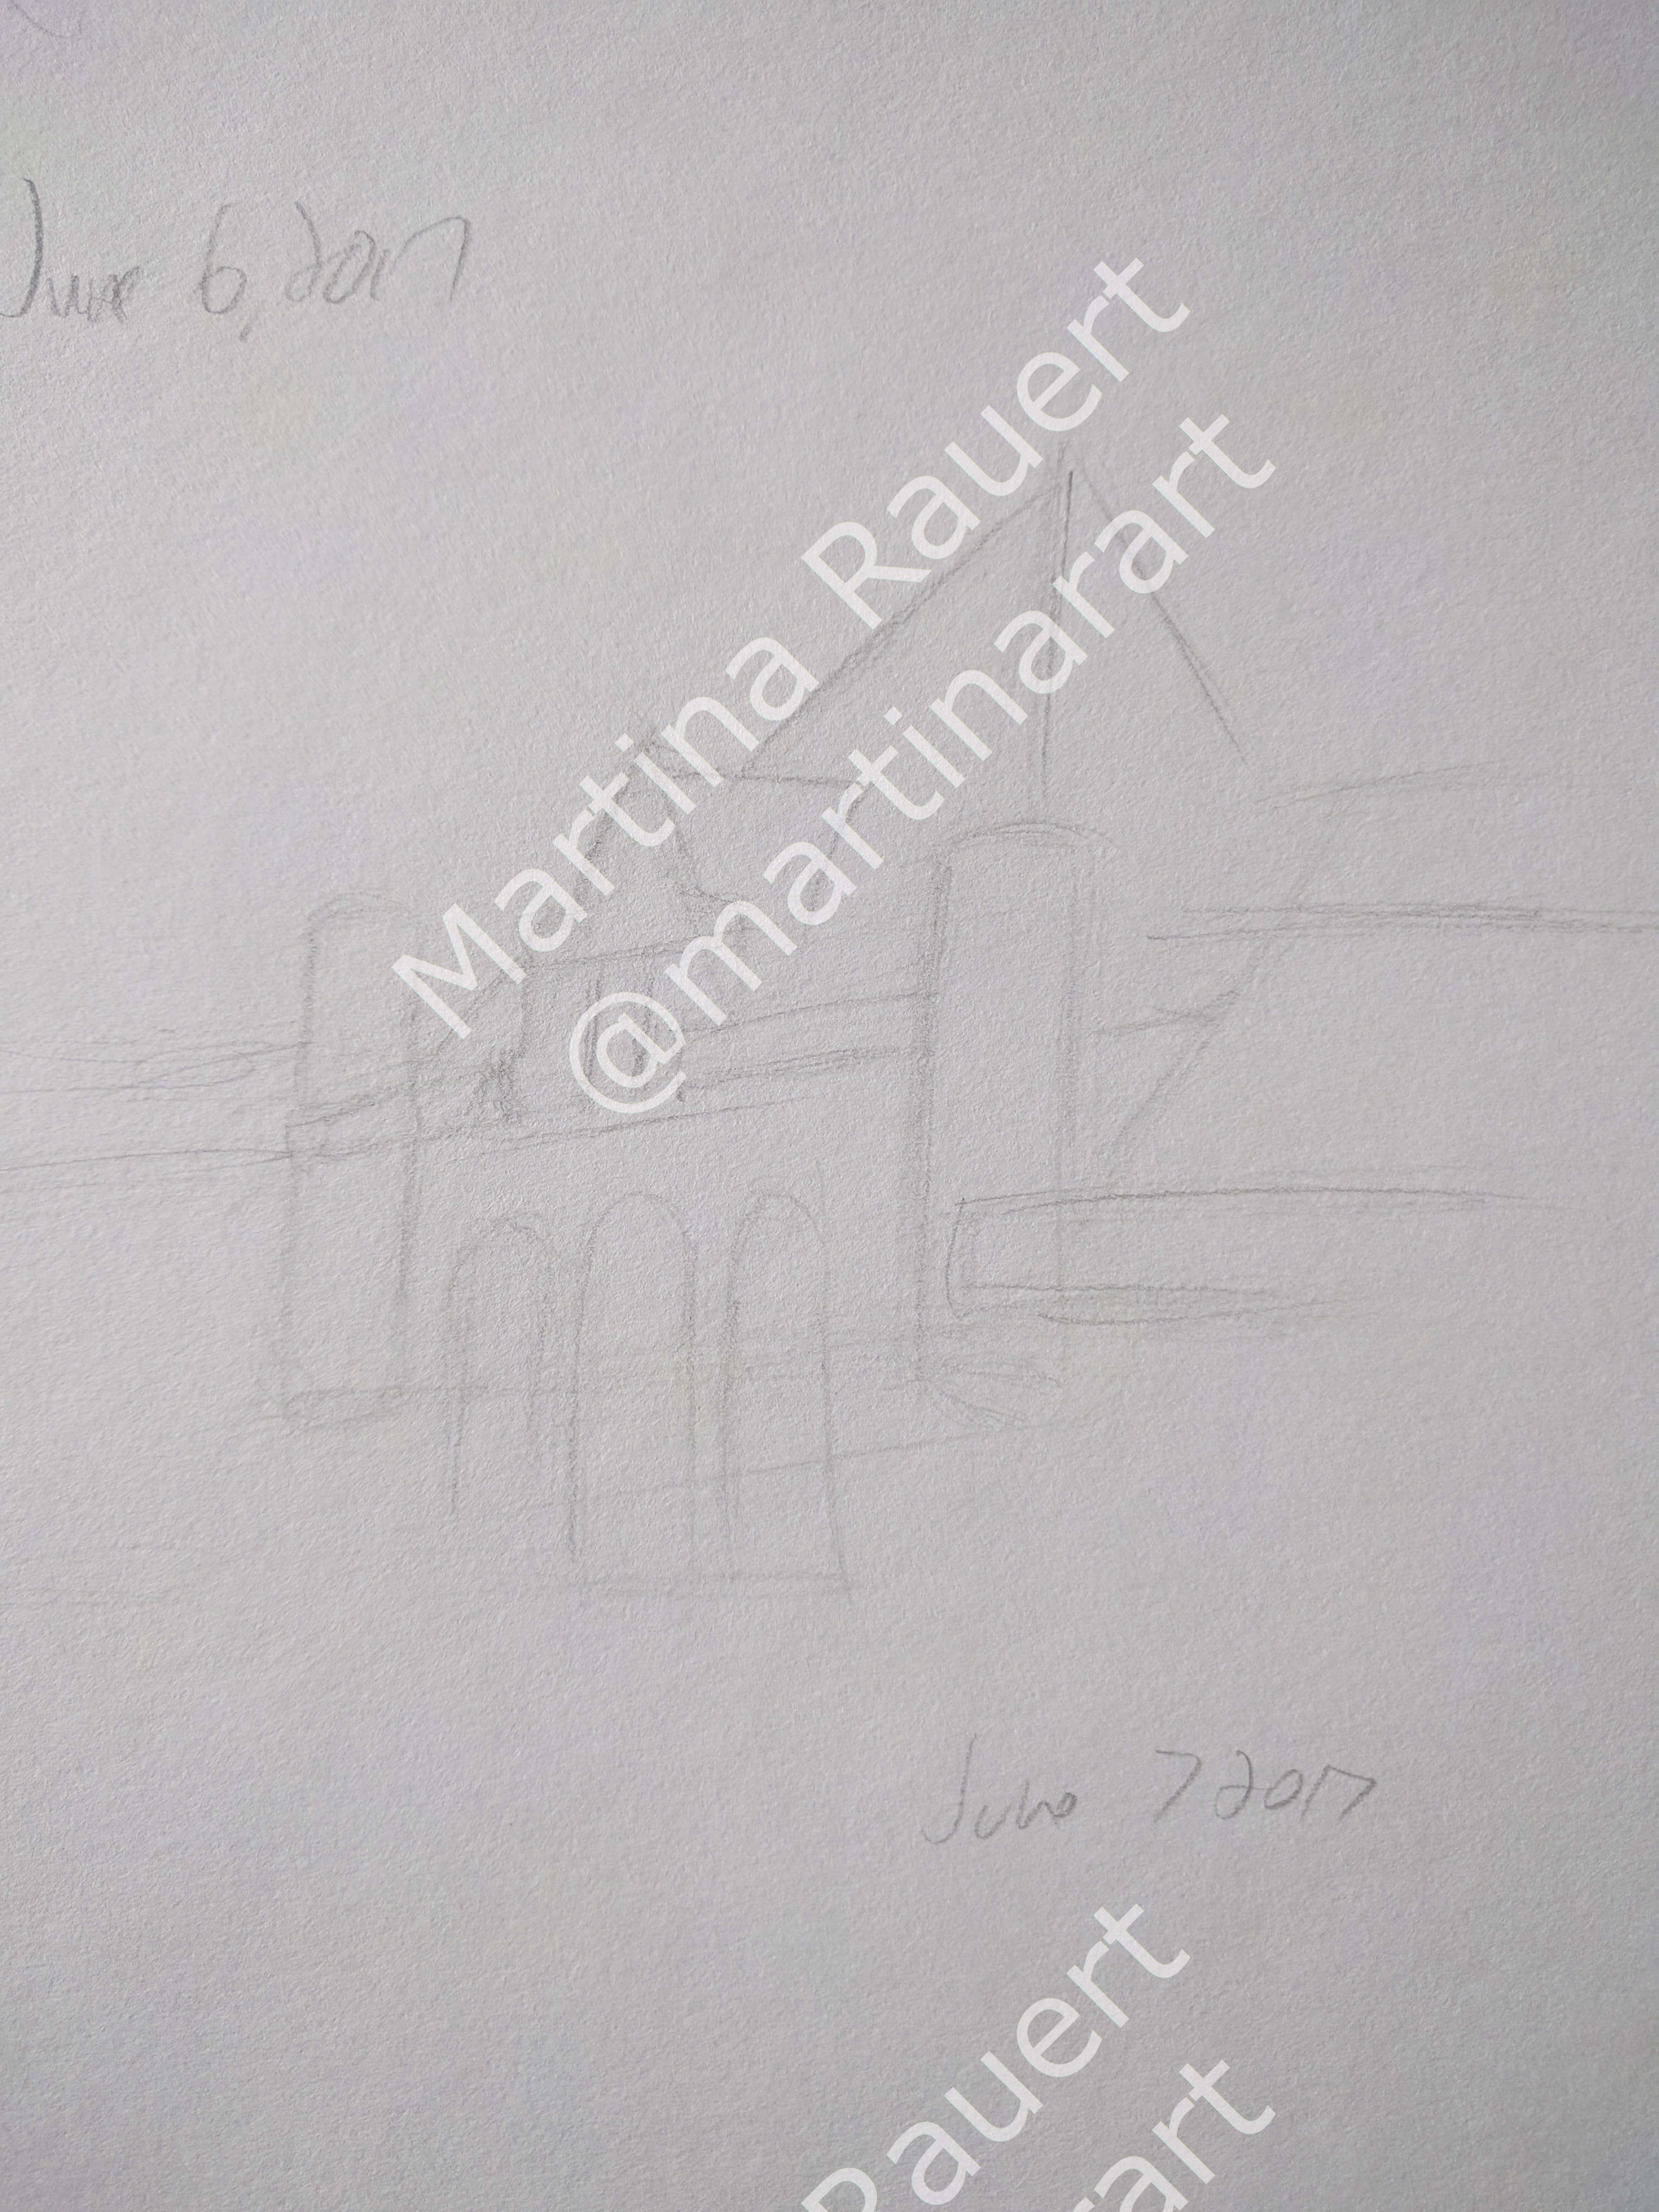 June 6, 2017
Martina Rauert
@martinarart
June 7 2017
Rauert
rart